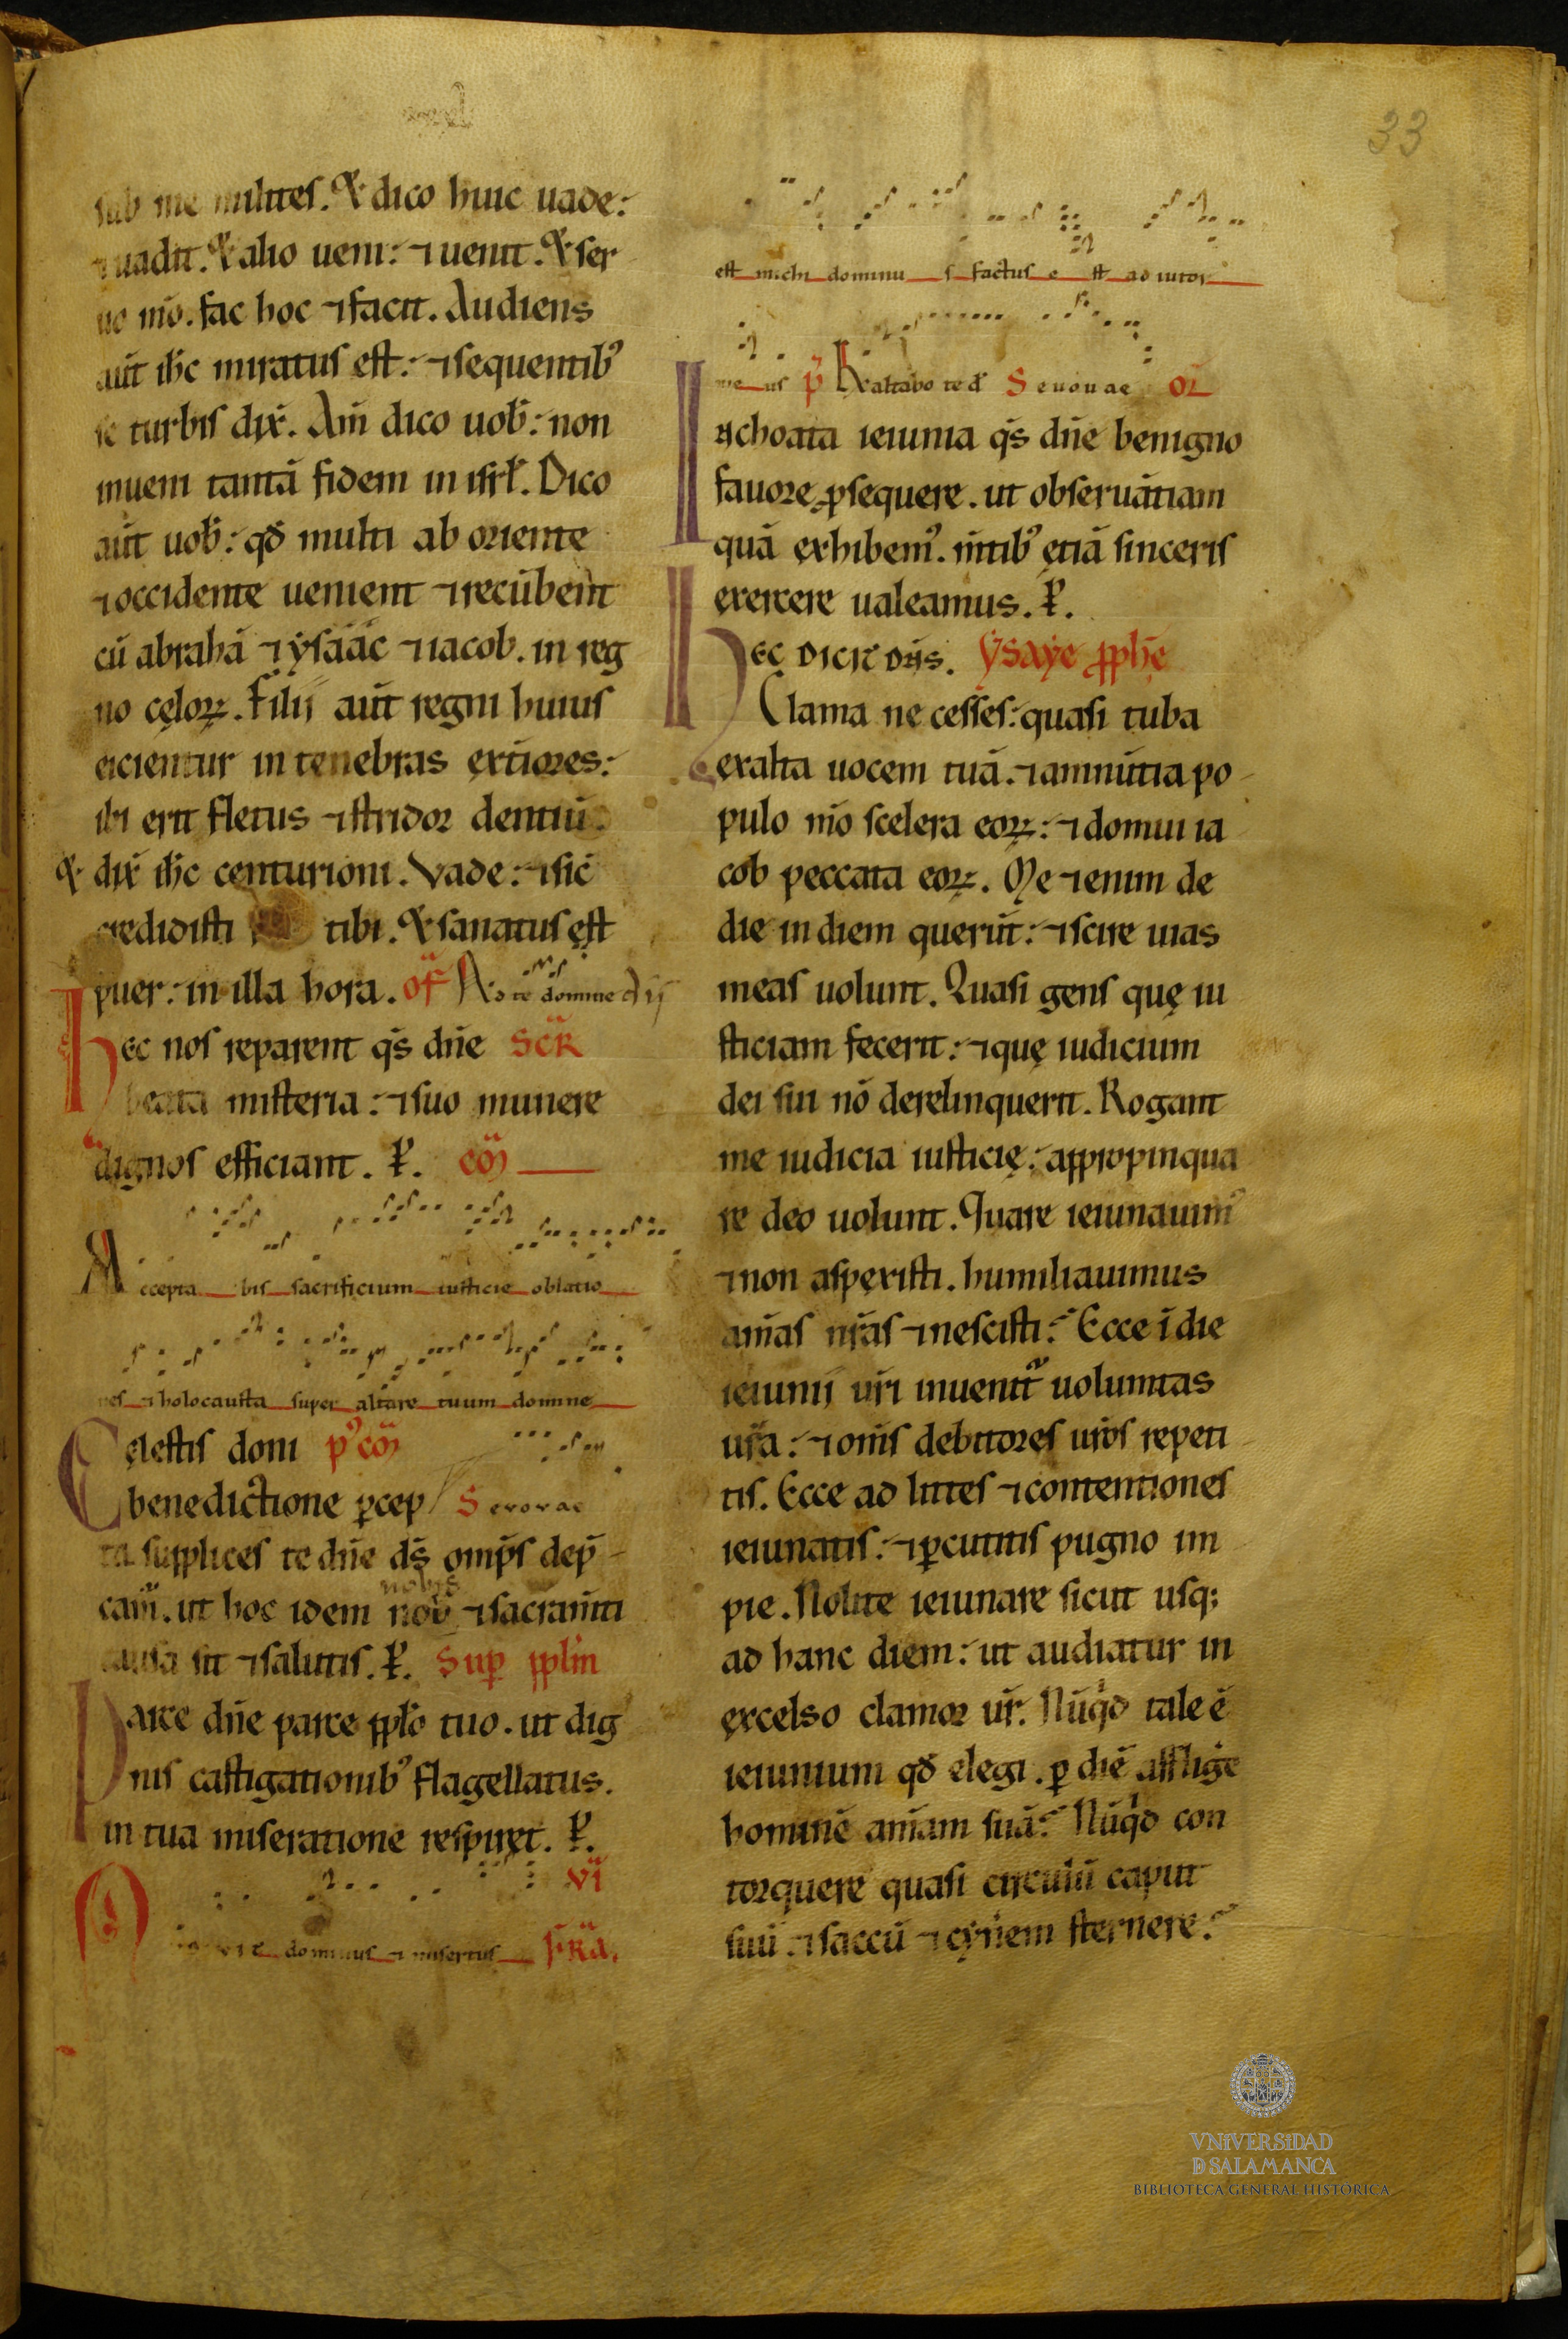 33
sub me milites. Et dico huic uade:
⁊ uadit. Et alio ueni: ⁊ uenit. Et ser
uo m̅o. fac hoc ⁊ facit. Audiens
aut̅ ih̅c miratus est: ⁊ sequentib᷒
se turbis dix̅. Am̅ dico uob̅: non
inueni tanta̅ fidem in isrł. Dico
aut̅ uob̅: qđ multi ab oriente
⁊ occidente uenient ⁊ recu̅bent
cu̅ abraha̅ ⁊ ysáác ⁊ iacob. in reg
no cęloꝝ. Filij aut̅ regni huius
eicientur in tenebras ext̅iores:
ibi erit fletus ⁊ stridor dentiu̅.
Et dix̅ ih̅c centurioni. Vade: ⁊ sic̅
credidisti tibi. Et sanatus est
puer: in illa hora. of̅ Ad te domine
hec nos reparent q̅s dn̅e SCR̅
beata misteria: ⁊ suo munere
dignos efficiant. P̅. co̅m
Accepta bis sacrificium iusticie oblatio
nes ⁊ holocausta super altare tuum domine
Celestis doni p᷒co̅m
benedictione ꝑcep S evovae
ta supplices te dn̅e ds̅ omp̅s dep̅
cam᷒. ut hoc idem nob̅ nobis ⁊ sacram̅ti
causa sit ⁊ salutis. P̅. Suꝑ pplm̅
Parce dn̅e parce ppło tuo. ut dig
nis castigationib᷒ flagellatus.
in tua miseratione respiret. P̅.
VI
dominus ⁊ misertus f̅r̅a.
est michi dominu s factus e st ad iutor
me us p̅ Exaltabo te d̅ Seuouae or̅
Inchoata ieiunia q̅s dn̅e benigno
fauore ꝓsequere. ut obserua̅tiam
qua̅ exhibem᷒. m̅tib᷒ etia̅ sinceris
exercere ualeamus. P̅.
Hec dicit dn̅s. Ysaye ꝓph̅e
Clama ne cesses: quasi tuba
exalta uocem tua̅. ⁊ annu̅tia po
pulo m̅o scelera eoꝝ: ⁊ domui ia
cob peccata eoꝝ. Me ⁊enim de
die in diem queru̅t: ⁊ scire uias
meas uolunt. Quasi gens quę iu
sticiam fecerit: ⁊ quę iudicium
dei sui no̅ derelinquerit. Rogant
me iudicia iusticię: appropinqua
re deo uolunt. Quare ieiunauim᷒
⁊ non aspexisti. humiliauimus
anim̅as nr̅as ⁊ nescisti: Ecce i̅ die
ieiunij ur̅i inuenit᷑ uoluntas
ur̅a: ⁊ om̅s debitores ur̅os repeti
tis. Ecce ad lites ⁊ contentiones
ieiunatis: ⁊ ꝑcutitis pugno im
pie. Nolite ieiunare sicut usq;
ad hanc diem: ut audiatur in
excelso clamor ur̅. Nu̅qd tale e̅
ieiunium qđ elegi. ꝑ die̅ afflige̅
homine̅ anim̅am sua̅: Nu̅qd con
torquere quasi circulu̅ caput
suu̅: ⁊ saccu̅ ⁊ cyn̅em sternere:
VNIVERSIDAD
D SALAMANCA
BIBLIOTECA GENERAL HISTÓRICA